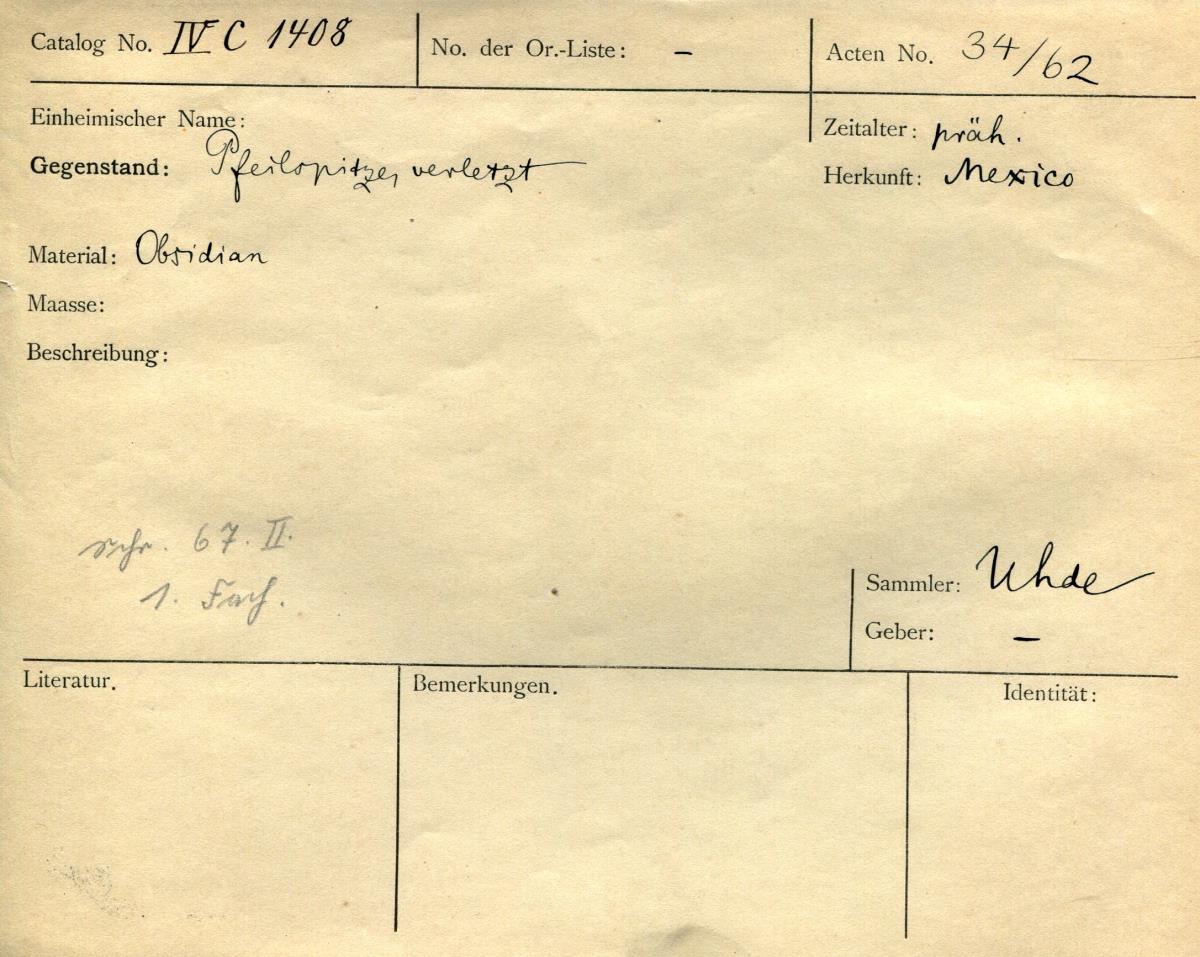 Catalog No. IV C 1408
No. der Or.-Liste: –
Acten No. 34/62
Einheimischer Name:
Gegenstand: Pfeilspitze, verletzt
Zeitalter: präh.
Herkunft: Mexico
Material: Obsidian
Maasse:
Beschreibung:
Schr. 67. II.
1. Fach.
Sammler: Uhde
Geber: –
Literatur.
Bemerkungen.
Identität: